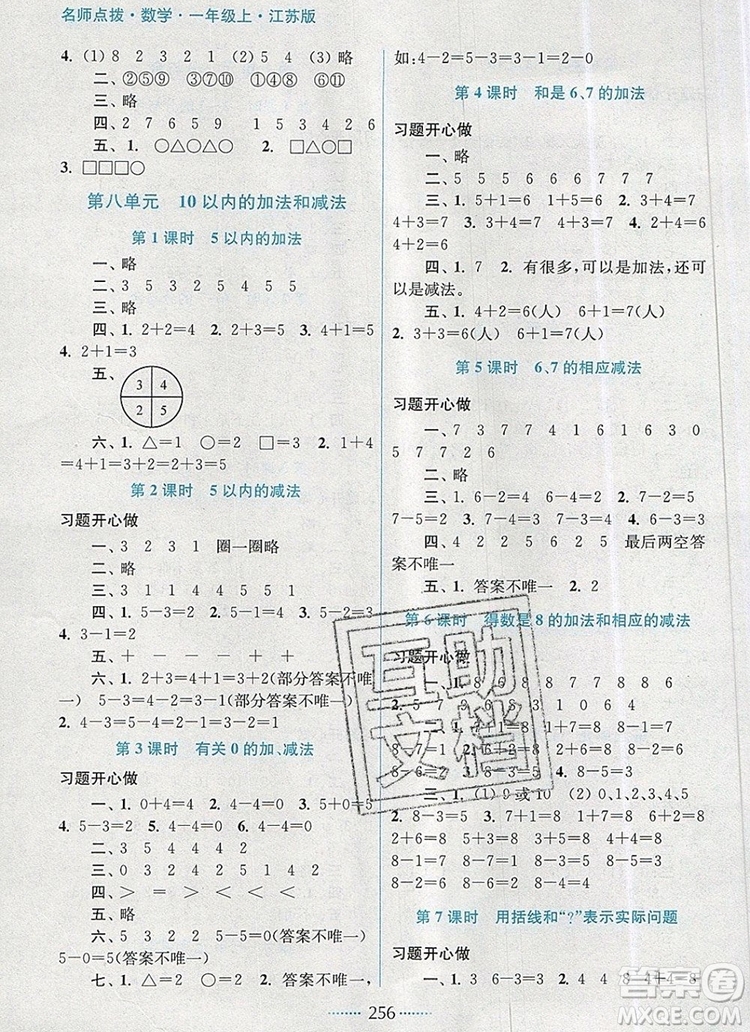 名师点拨·数学·一年级上·江苏版
4. (1) 8 2 9 1 3 2 (2) 5 4 (3) 略
二、②⑤⑨ ③⑦⑩ ①④⑥⑧⑪
三、略
四、2 7 6 5 9 1 5 3 4 2 6
五、1. ○△○△○ 2. △□△□△□
3. □□□○
第八单元 10 以内的加法和减法
第 1 课时 5 以内的加法
一、略
二、3 5 3 2 5 4 5 5
三、略
四、1. 2+2=4 2. 2+3=5 3. 4+1=5
4. 2+1=3
五、
3 4
2 5
六、1. △=1 ○=2 □=3 2. 1+4
=4+1=2+3=3+2=5
第 2 课时 5 以内的减法
习题开心做
一、3 2 3 1 圈一圈略
二、略
三、1 1 3 1 4 4 5 5 1
四、1. 5-3=2 2. 5-4=1 3. 5-1=4
4. 3-1=2
五、+ - - + - +
六、1. 2+3=4+1=5+0(部分答案不唯
一) 5-3=4-2=3-1=2-0(部分答案不唯一)
2. 4-3=1
第 3 课时 有关 0 的加、减法
习题开心做
一、1. 0+4=4 2. 4-4=0 3. 5+0=5
4. 5-3=2 5. 4-0=4 6. 4-4=0
二、略
三、0 3 2 4 2 5 1 3 4 2
四、> = > < < <
五、略
六、5 3 2 2 5-5=0(答案不唯一)
5-0=5(答案不唯一)
七、1. △=2 ○=0 2. 答案不唯一,
如:4-2=5-3 4-0=5-1
第 4 课时 和是 6、7 的加法
习题开心做
一、略
二、5 5 5 6 6 6 7 7 7
三、1. 5+1=6 1+5=6 2. 3+4=7
4+3=7 3. 3+3=6 4. 2+4=6
4+2=6
四、1. 7 2. 有很多,可以是加法,还可
以是减法。
五、1. 4+2=6(人) 6+1=7(人)
2. 3+3=6(人) 6+1=7(人)
第 5 课时 6、7 的相应减法
习题开心做
一、7 3 7 7 4 1 6 1 6 3 0
5 7 7 2 6
二、略
三、1. 6-2=4 6-4=2 2. 7-2=5
7-5=2 3. 7-4=3 7-3=4 4. 6-3=3
四、4 2 2 5 6 2 5 最后两空答
案不唯一
五、1. 答案不唯一 2. 2
第 6 课时 得数是 8 的加法和相应的减法
习题开心做
8-7=1
8-6=2 3. 8-5=3
2. 1+7=8 6+2=8
2+6=8 5+3=8 3+5=8 4+4=8
8-1=7 8-7=1 8-2=6 8-6=2
8-4=4 8-5=3 8-3=5
第 7 课时 用括线和“?”表示实际问题
习题开心做
一、1. 3 6-3=3 2. 8 4+4=8
256
互助文档
答案圈
MXQE.COM